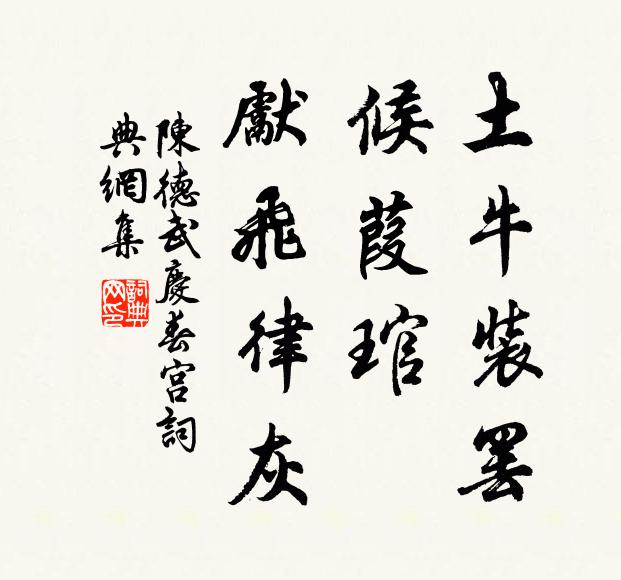 土牛裝罷
候葭琯
獻飛律灰
陳德武慶春宮詞
典網集
詞典網印